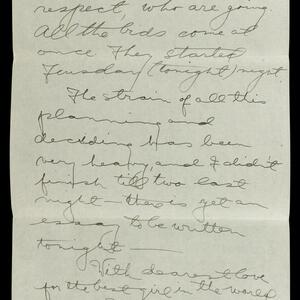 respect, who are going.
All the bids come at
once. They started
Tuesday (tonight) night.
The strain of all this
planning and
deciding has been
very heavy, and I didn't
finish till two last
night — there is yet an
essay to be written
tonight —
With dearest love
for the best girl in the world